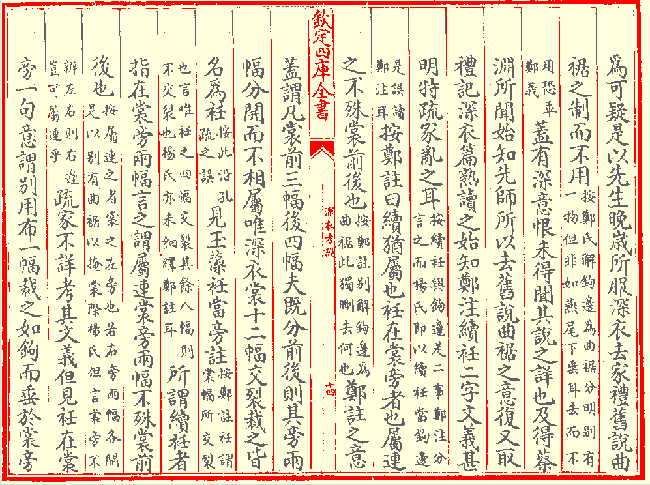 為可疑是以先生晚嵗所服深衣去家禮舊說曲
裾之制而不用按鄭氏解鉤邊為曲裾分明别有一物但非如燕尾下垂耳去而不
用恐乖鄭義蓋有深意恨未得聞其說之詳也及得蔡
淵所聞始知先師所以去舊說曲裾之意復又取
禮記深衣篇熟讀之始知鄭注續衽二字文義甚
明特疏家亂之耳按續衽與鉤邊是二事鄭注分言之而楊氏即以續衽當鉤邊
是誤讀鄭注耳按鄭註曰續猶屬也衽在裳旁者也屬連
之不殊裳前後也按鄭註别解鉤邊為曲裾此獨刪去何也鄭註之意
欽定四庫全書
深衣考誤
十四
蓋謂凡裳前三幅後四幅夫既分前後則其旁兩
幅分開而不相屬唯深衣裳十二幅交裂裁之皆
名為衽按此沿孔疏之誤見玉藻衽當旁註按鄭註衽謂裳幅所交裂
也言唯衽之四幅交裂其餘八幅則不交裂也楊氏亦未細繹鄭註耳所謂續衽者
指在裳旁兩幅言之謂屬連裳旁兩幅不殊裳前
後也按屬連之者裳之左旁也若右旁兩幅各開是以别有曲裾以掩裳際楊氏但言裳旁不
辨左右則右邊豈可屬連乎疏家不詳考其文義但見衽在裳
旁一句意謂别用布一幅裁之如鉤而垂於裳旁